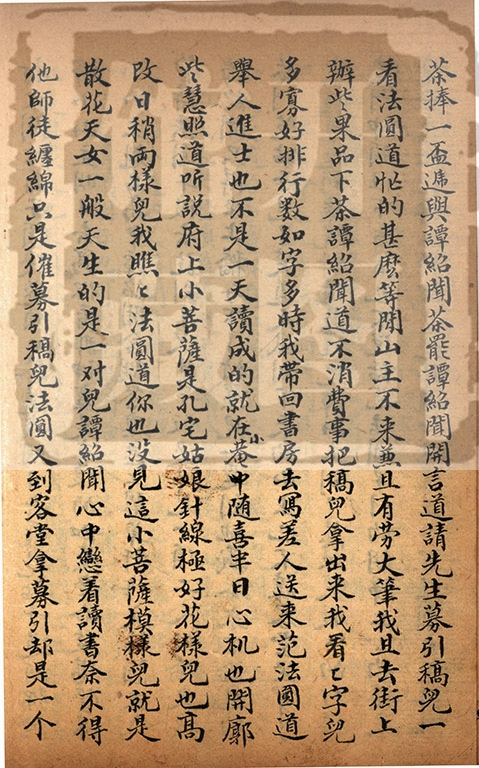 茶捧一盃遞與譚紹聞茶罷譚紹聞開言道請先生募引稿兒一
看法圓道忙的甚麽等閒山主不来兼且有劳大筆我且去街上
辦些果品下茶譚紹聞道不消費事把稿兒拿出来我看〻字兒
多寡好排行数如字多時我帶回書房去寫差人送来范法圓道
舉人進士也不是一天讀成的就在小菴中随喜半日心机也開廓
些慧照道听説府上小菩薩是孔宅姑娘針線極好花樣兒也高
改日稍両樣兒我瞧〻法圓道你也没見這小菩薩模樣兒就是
散花天女一般天生的是一对兒譚紹聞心中戀着讀書奈不得
他師徒纏綿只是催募引稿兒法圓又到客堂拿募引却是一个